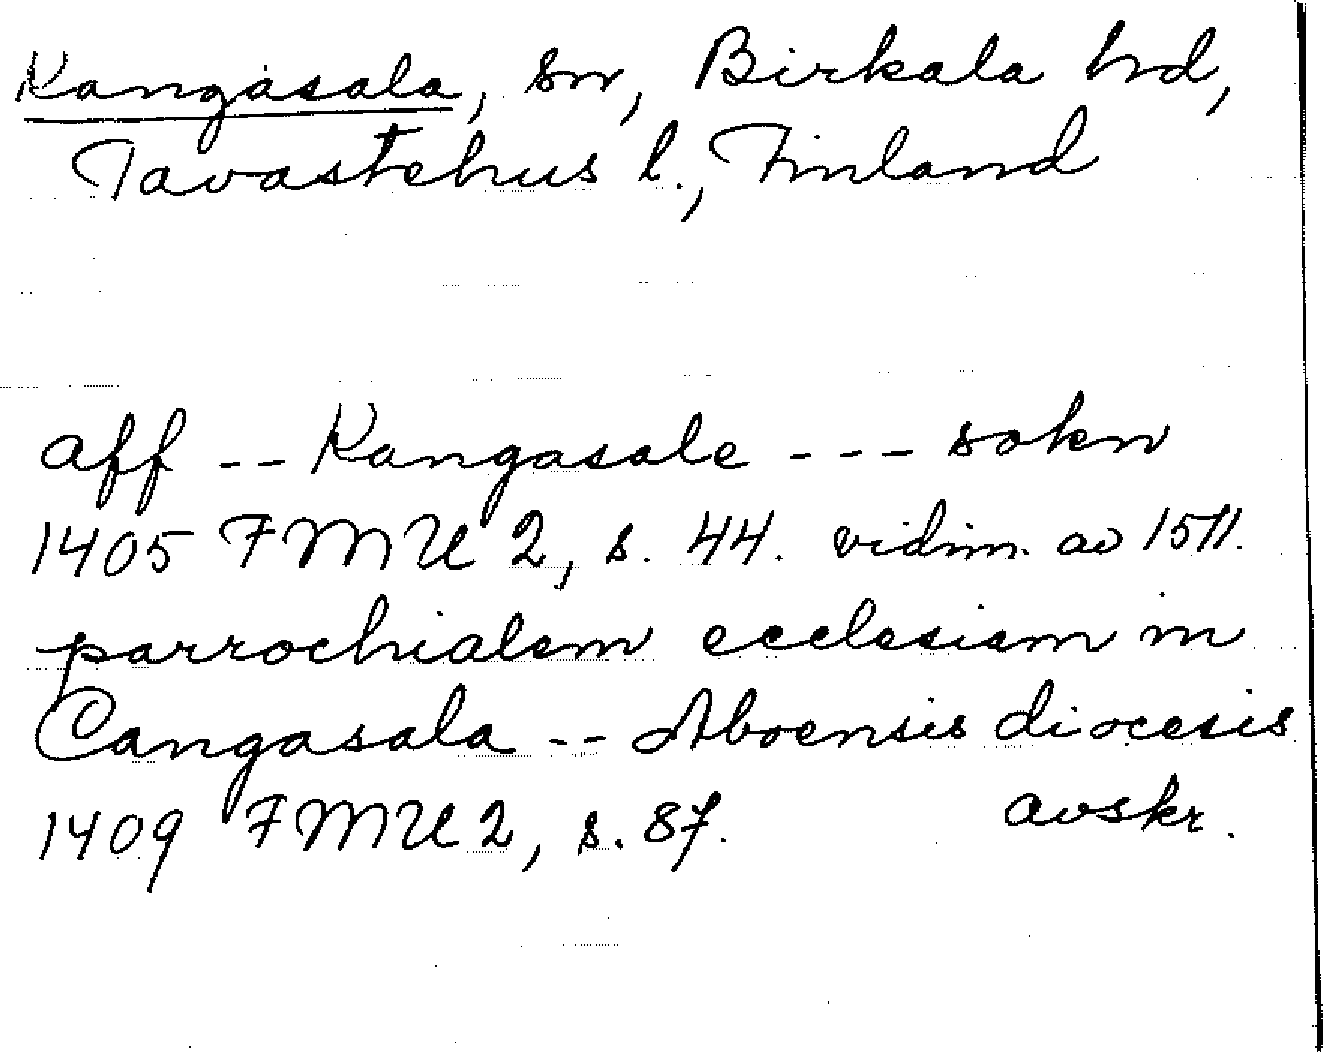 Kangasala, sn, Birkala hd,
Tavastehus l., Finland
aff -- Kangasale --- sokn
1405 FMU 2, s. 44. vidim. av 1511.
parrochialem ecclesiam in
Cangasala -- Aboensis diocesis
1409 FMU 2, s. 87. avskr.